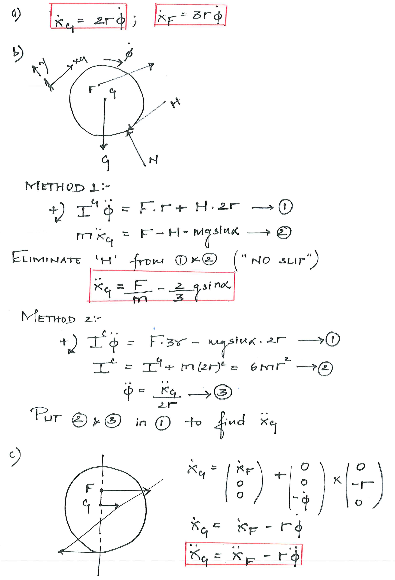 a) ẋ_G = 2rφ̇ ; ẋ_F = 3rφ̇
b)
y x_G φ̇
F G
H
G N
METHOD 1:-
+) I^G φ̈ = F·r + H·2r → ①
mẍ_G = F - H - mg sinα → ②
ELIMINATE 'H' from ① & ② ("NO SLIP")
ẍ_G = F/m - 2/3 g sinα
METHOD 2:-
+) I^C φ̈ = F·3r - mg sinα·2r → ①
I^C = I^G + m(2r)² = 6mr² → ②
φ̈ = ẍ_G/2r → ③
PUT ② & ③ in ① to find ẍ_G
c)
F
G
ẋ_G = (ẋ_F 0 0) + (0 0 -φ̇) × (0 -r 0)
ẋ_G = ẋ_F - rφ̇
ẍ_G = ẍ_F - rφ̈